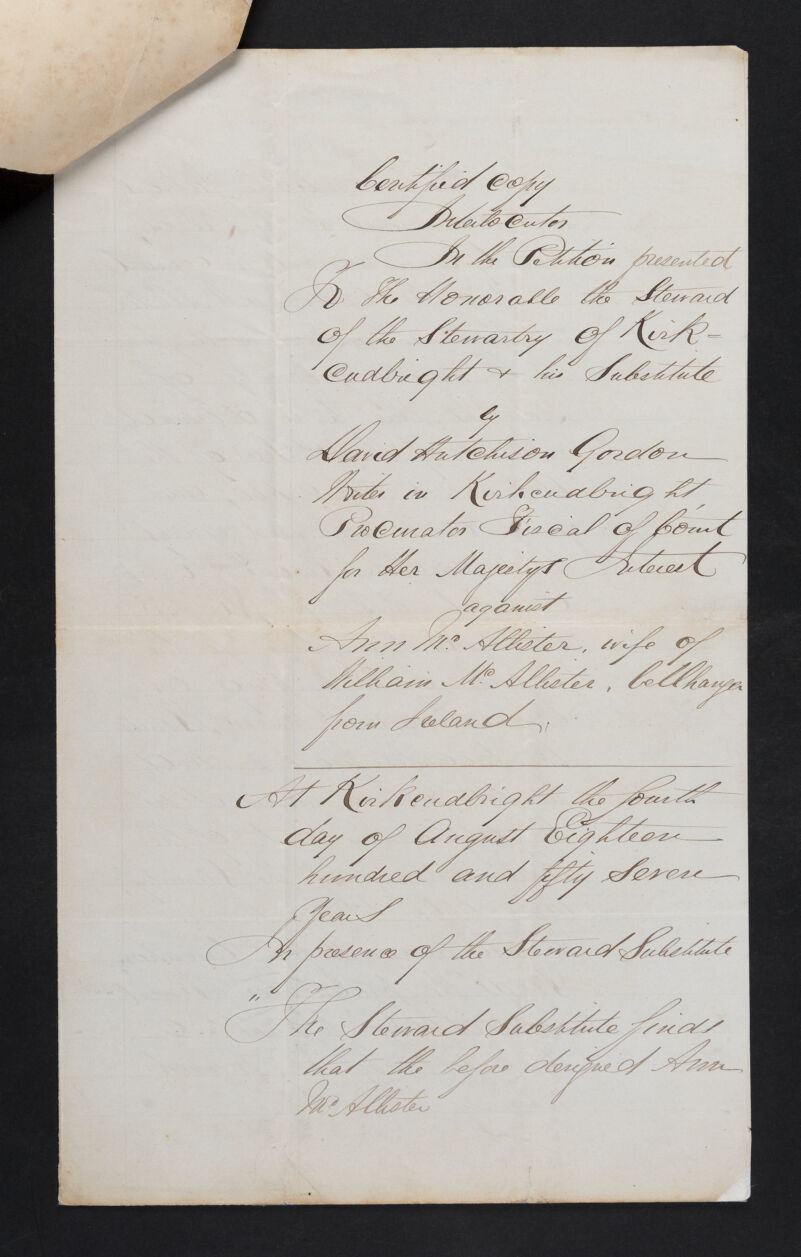 Certified copy
Interlocutor
In the Petition presented
To The Honorable the Steward
of the Stewartry of Kirk=
cudbright & his Substitute
by
David Hutchison Gordon
Writer in Kirkcudbright,
Procurator Fiscal of Court
for Her Majestys Interest
against
Ann Mc.Allister, wife of
William Mc.Allister, bellhanger
from Ireland.
At Kirkcudbright the fourth
day of August Eighteen
hundred and fifty seven
years
In presence of the Steward Substitute
"The Steward Substitute finds
that the before designed Ann
Mc.Allister